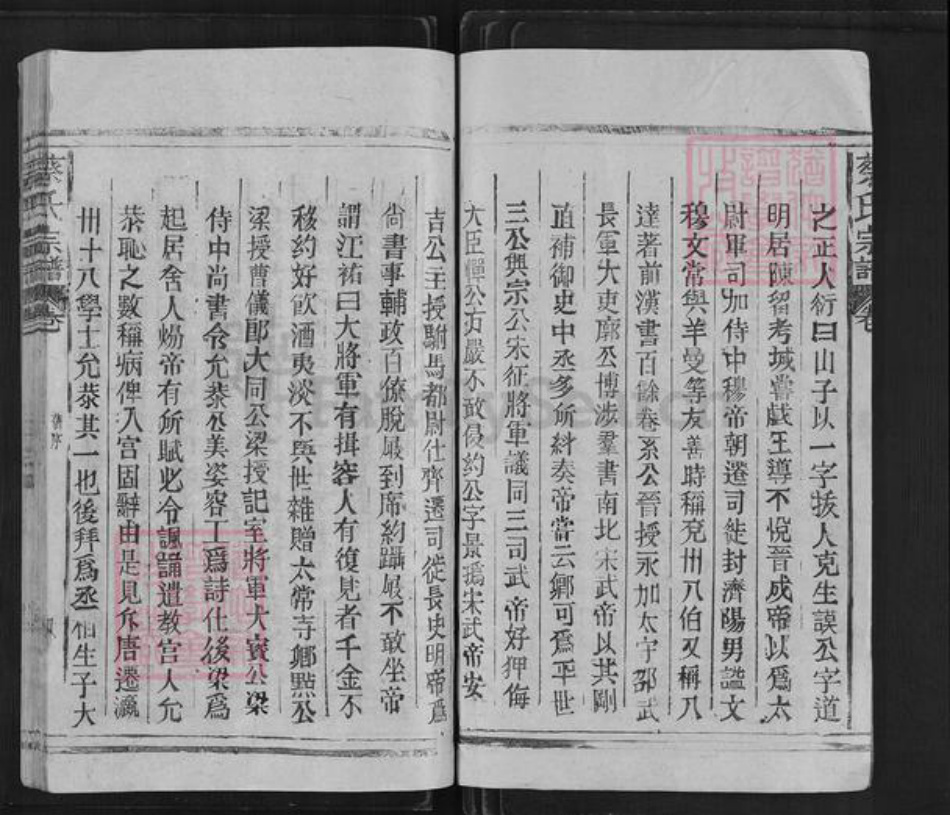 蔡氏宗譜
之正人衍曰山子以一字拔人克生謨公字道
明居陳留考城嘗戱王導不悅晉成帝以爲太
尉軍司加侍中穆帝朝遷司徙封濟陽男諡文
穆文常與羊曼等友善時稱兗卅八伯又稱八
達著前漢書百餘卷系公晉授永加太守邵武
長軍大吏廓公博涉羣書南北宋武帝以其剛
直補御史中丞多所糾奏帝嘗云鄉可爲平世
三公興宗公宋征將軍議同三司武帝好狎侮
大臣憚公方嚴不敢侵約公字景撝宋武帝安
吉公主授駙馬都尉仕齊遷司徙長史明帝爲
尙書事輔政百僚脫屐到席約躡屐不敢坐帝
謂江祐曰大將軍有揖容人有復見者千金不
移約好飲酒夷淡不與世雜贈太常寺鄉㸃公
梁授曹儀郎大同公梁授記室將軍大寶公梁
侍中尚書令允恭公美姿容工爲詩仕後梁爲
起居舍人煬帝有所賦必令諷誦遣教宮人允
恭恥之數稱病俾入宮固辭由是見斥唐遷瀛
卅十八學士允恭其一也後拜爲丞相生子大
舊序
蔡氏宗譜 卷